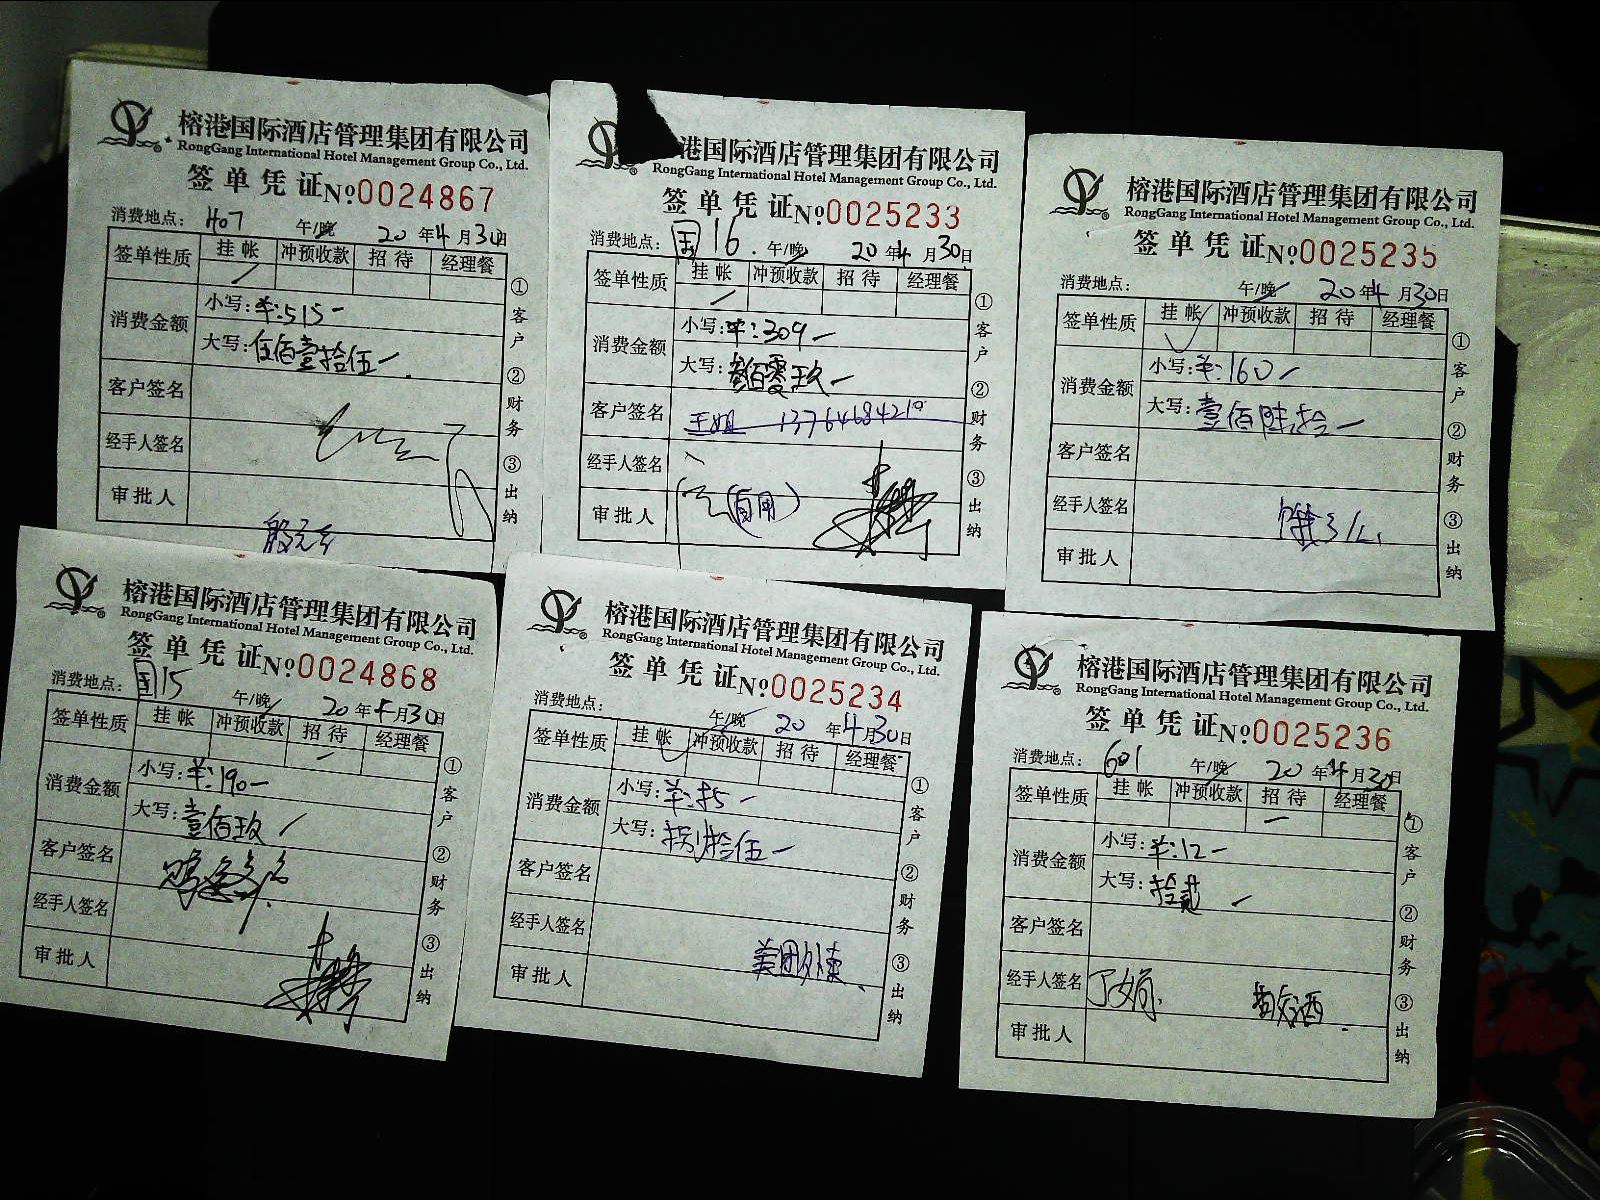 榕港国际酒店管理集团有限公司
RongGang International Hotel Management Group Co., Ltd.
签单凭证 №0024867
消费地点： H07 午/晚 20 年 4 月 30 日
签单性质 挂帐 冲预收款 招待 经理餐
消费金额 小写：¥:515
大写：伍佰壹拾伍
客户签名
经手人签名
审批人
①客户 ②财务 ③出纳
港国际酒店管理集团有限公司
RongGang International Hotel Management Group Co., Ltd.
签单凭证 №0025233
消费地点： 国16 午/晚 20 年 4 月 30 日
签单性质 挂帐 冲预收款 招待 经理餐
消费金额 小写：¥:309
大写：叁佰零玖
客户签名 王姐
经手人签名
审批人
①客户 ②财务 ③出纳
榕港国际酒店管理集团有限公司
RongGang International Hotel Management Group Co., Ltd.
签单凭证 №0025235
消费地点： 午/晚 20 年 4 月 30 日
签单性质 挂帐 冲预收款 招待 经理餐
消费金额 小写：¥:160
大写：壹佰陆拾
客户签名
经手人签名 饿了么
审批人
①客户 ②财务 ③出纳
榕港国际酒店管理集团有限公司
RongGang International Hotel Management Group Co., Ltd.
签单凭证 №0024868
消费地点： 国15 午/晚 20 年 4 月 30 日
签单性质 挂帐 冲预收款 招待 经理餐
消费金额 小写：¥:190
大写：壹佰玖
客户签名
经手人签名
审批人
①客户 ②财务 ③出纳
榕港国际酒店管理集团有限公司
RongGang International Hotel Management Group Co., Ltd.
签单凭证 №0025234
消费地点： 午/晚 20 年 4 月 30 日
签单性质 挂帐 冲预收款 招待 经理餐
消费金额 小写：
大写： 拾伍
客户签名
经手人签名 美团外卖
审批人
①客户 ②财务 ③出纳
榕港国际酒店管理集团有限公司
RongGang International Hotel Management Group Co., Ltd.
签单凭证 №0025236
消费地点： 601 午/晚 20 年 4 月 30 日
签单性质 挂帐 冲预收款 招待 经理餐
消费金额 小写：¥:12
大写：拾贰
客户签名
经手人签名
审批人
①客户 ②财务 ③出纳